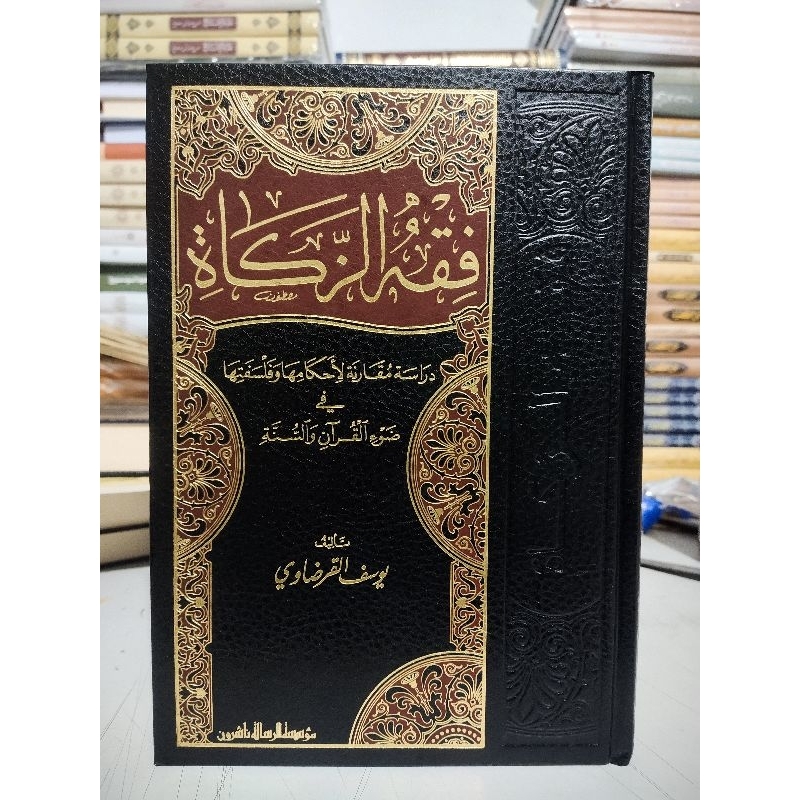 فِقْهُ الزَّكَاة
دِرَاسَة مُقَارَنَة لِأَحْكَامِهَا وَفَلْسَفَتِهَا
فِي
ضَوْءِ القُرْآنِ وَالسُّنَّةِ
تأليف
يوسف القرضاوي
مؤسسة الرسالة ناشرون